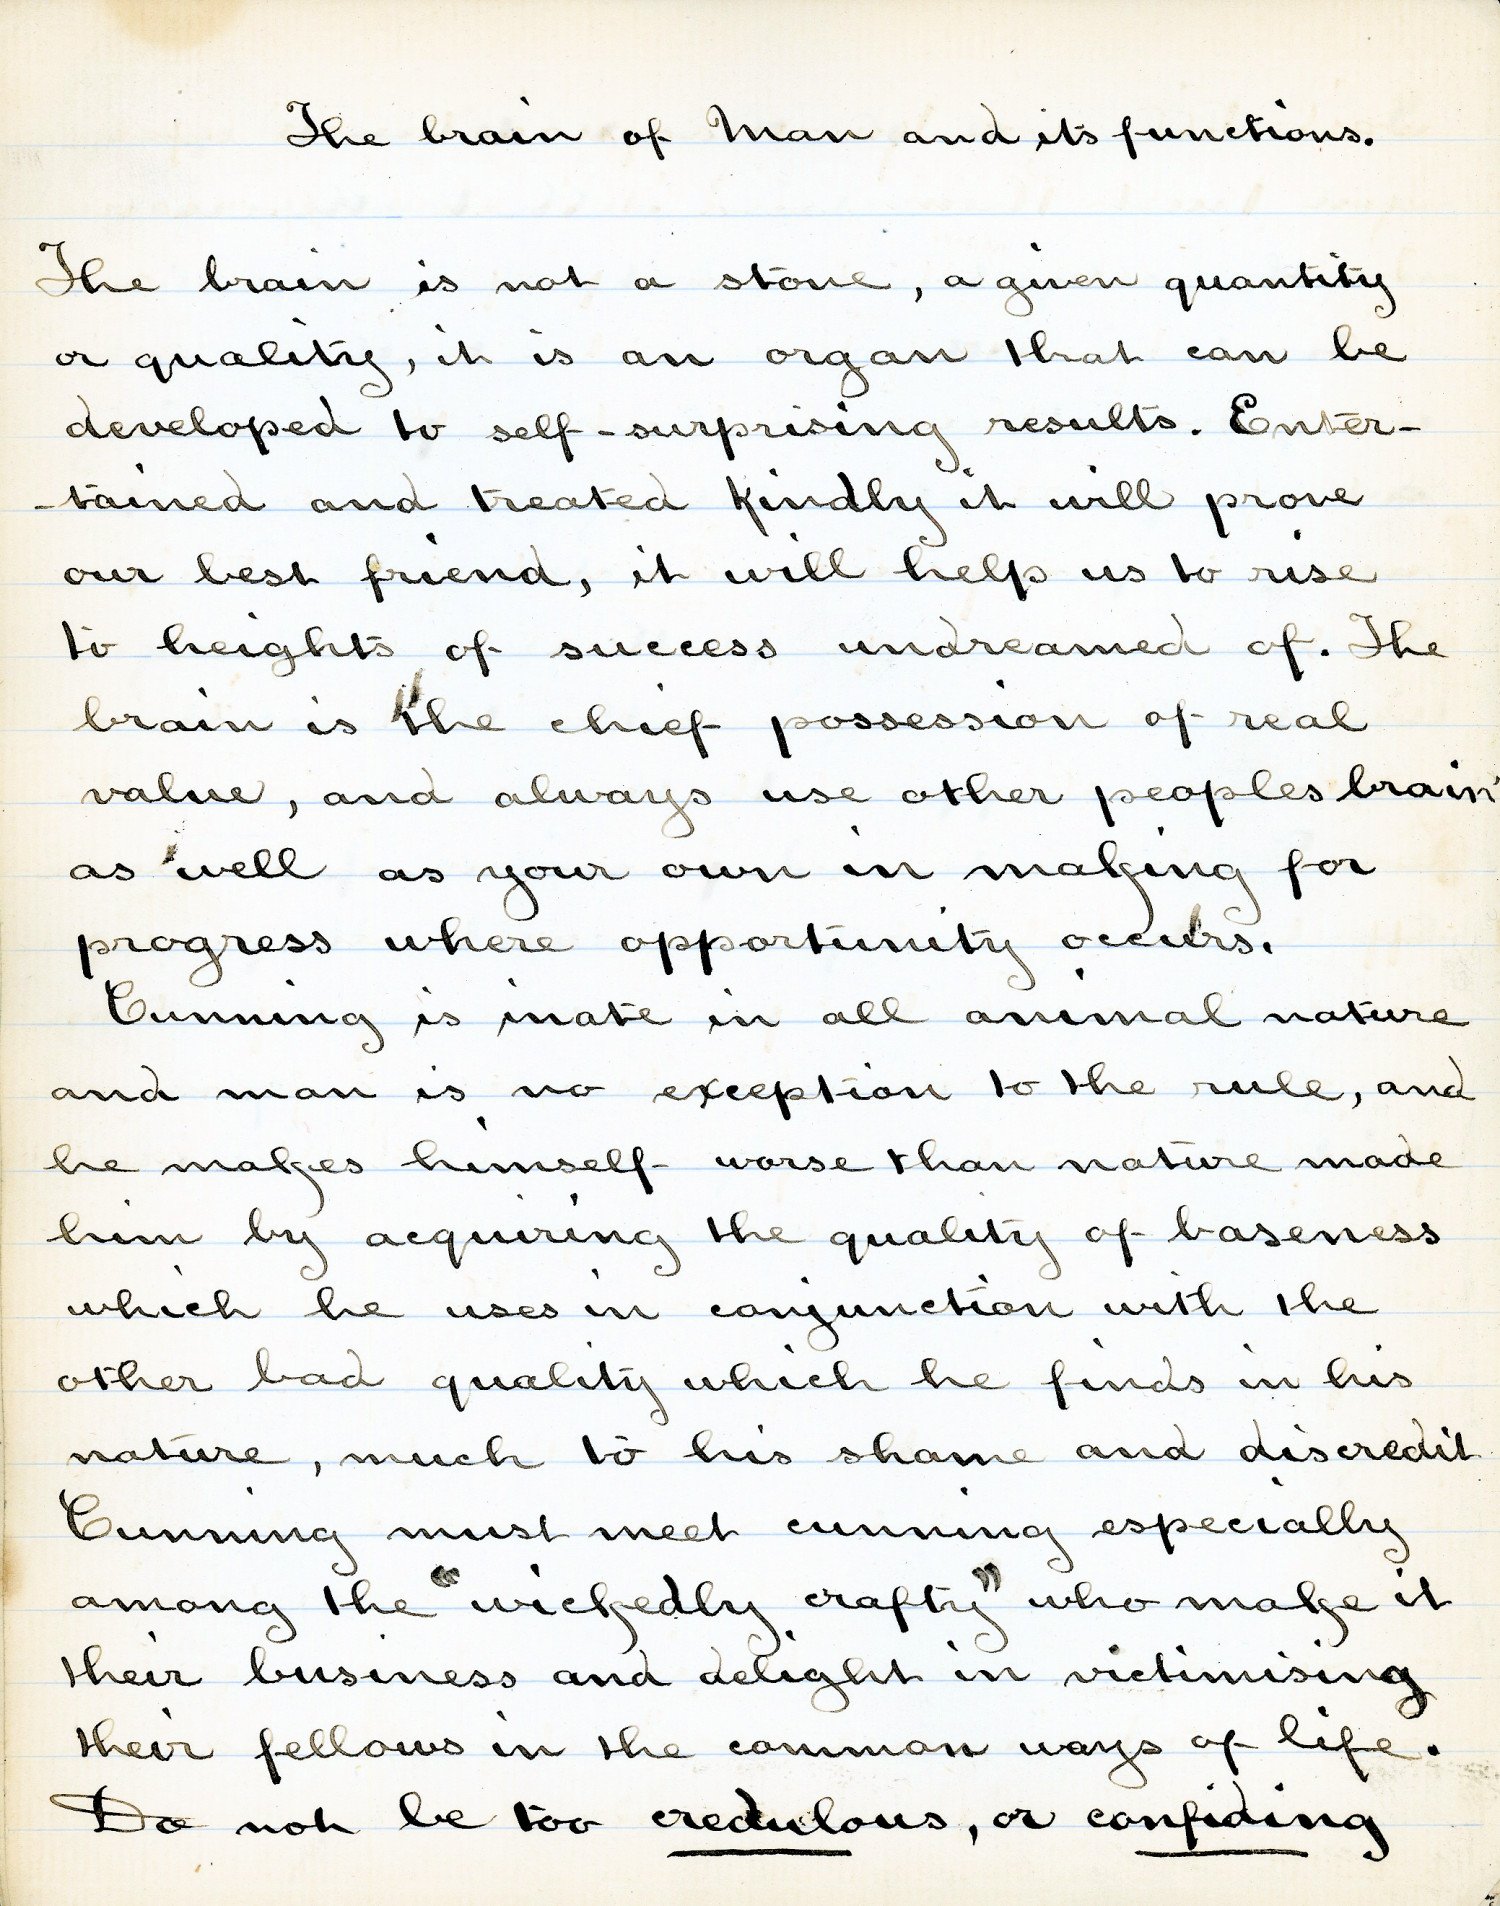 The brain of Man and its functions.
The brain is not a stone, a given quantity
or quality, it is an organ that can be
developed to self-surprising results. Enter-
-tained and treated kindly it will prove
our best friend, it will help us to rise
to heights of success undreamed of. The
brain is the chief possession of real
value, and always use other peoples brain
as well as your own in making for
progress where opportunity occurs.
Cunning is inate in all animal nature
and man is no exception to the rule, and
he makes himself worse than nature made
him by acquiring the quality of baseness
which he uses in conjunction with the
other bad quality which he finds in his
nature, much to his shame and discredit
Cunning must meet cunning especially
among the "wickedly crafty" who make it
their business and delight in victimising
their fellows in the common ways of life.
Do not be too credulous, or confiding